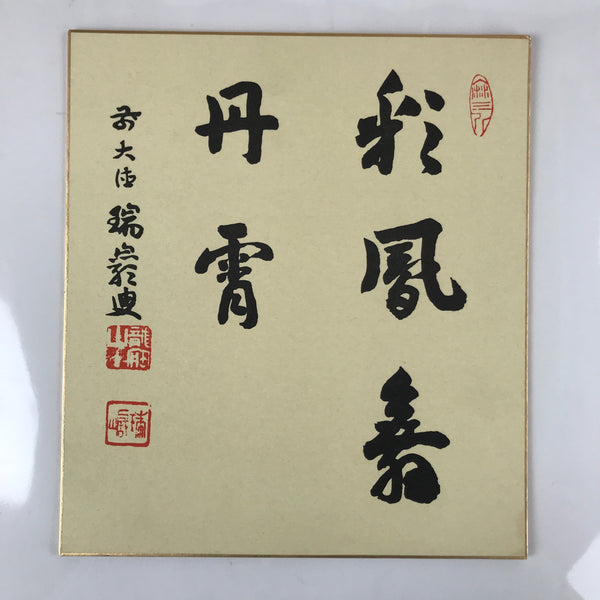 彩鳳舞
丹霄
前大徳 瑞巌